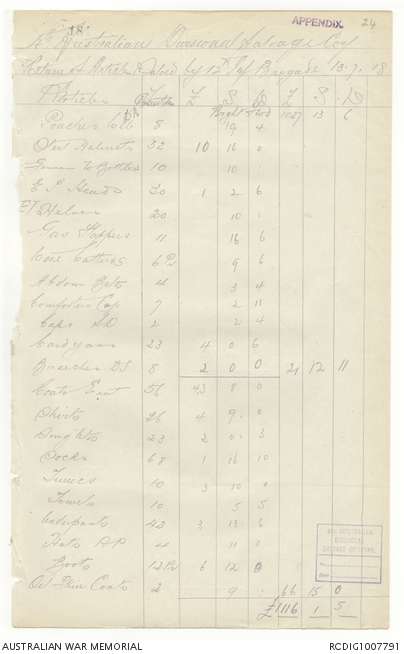 APPENDIX. 24
4th Australian Divisional Salvage Coy
Return of Articles Salved by 12th Inf Brigade 18.7.18
Articles £ S D £ S D
Brought Fwd 1027 13 6
Pouches 8 19 4
Steel Helmets 32 10 16 0
Water Bottles 10 10
E T Heads 30 1 2 6
E T Helves 20 10
Gas 11 16 6
Wire Cutters 6 Prs 9 6
Abdom Belts 4 3 4
Comforters Cap 7 2 11
Caps SD 2 2 4
Cardigans 23 4 0 6
Breeches DS 8 2 0 0 21 12 11
Coats Great 56 43 8 0
Shirts 26 4 9 0
Singlets 23 2 0 3
Socks 68 1 16 10
Tunics 10 3 10 0
Towels 10 5 5
Underpants 42 3 13 6
Hats 4 11 0
Boots 12 Prs 6 12 0
Oil Skin Coats 2 9 66 15 0
£1116 1 5
AUSTRALIAN WAR MEMORIAL RCDIG1007791